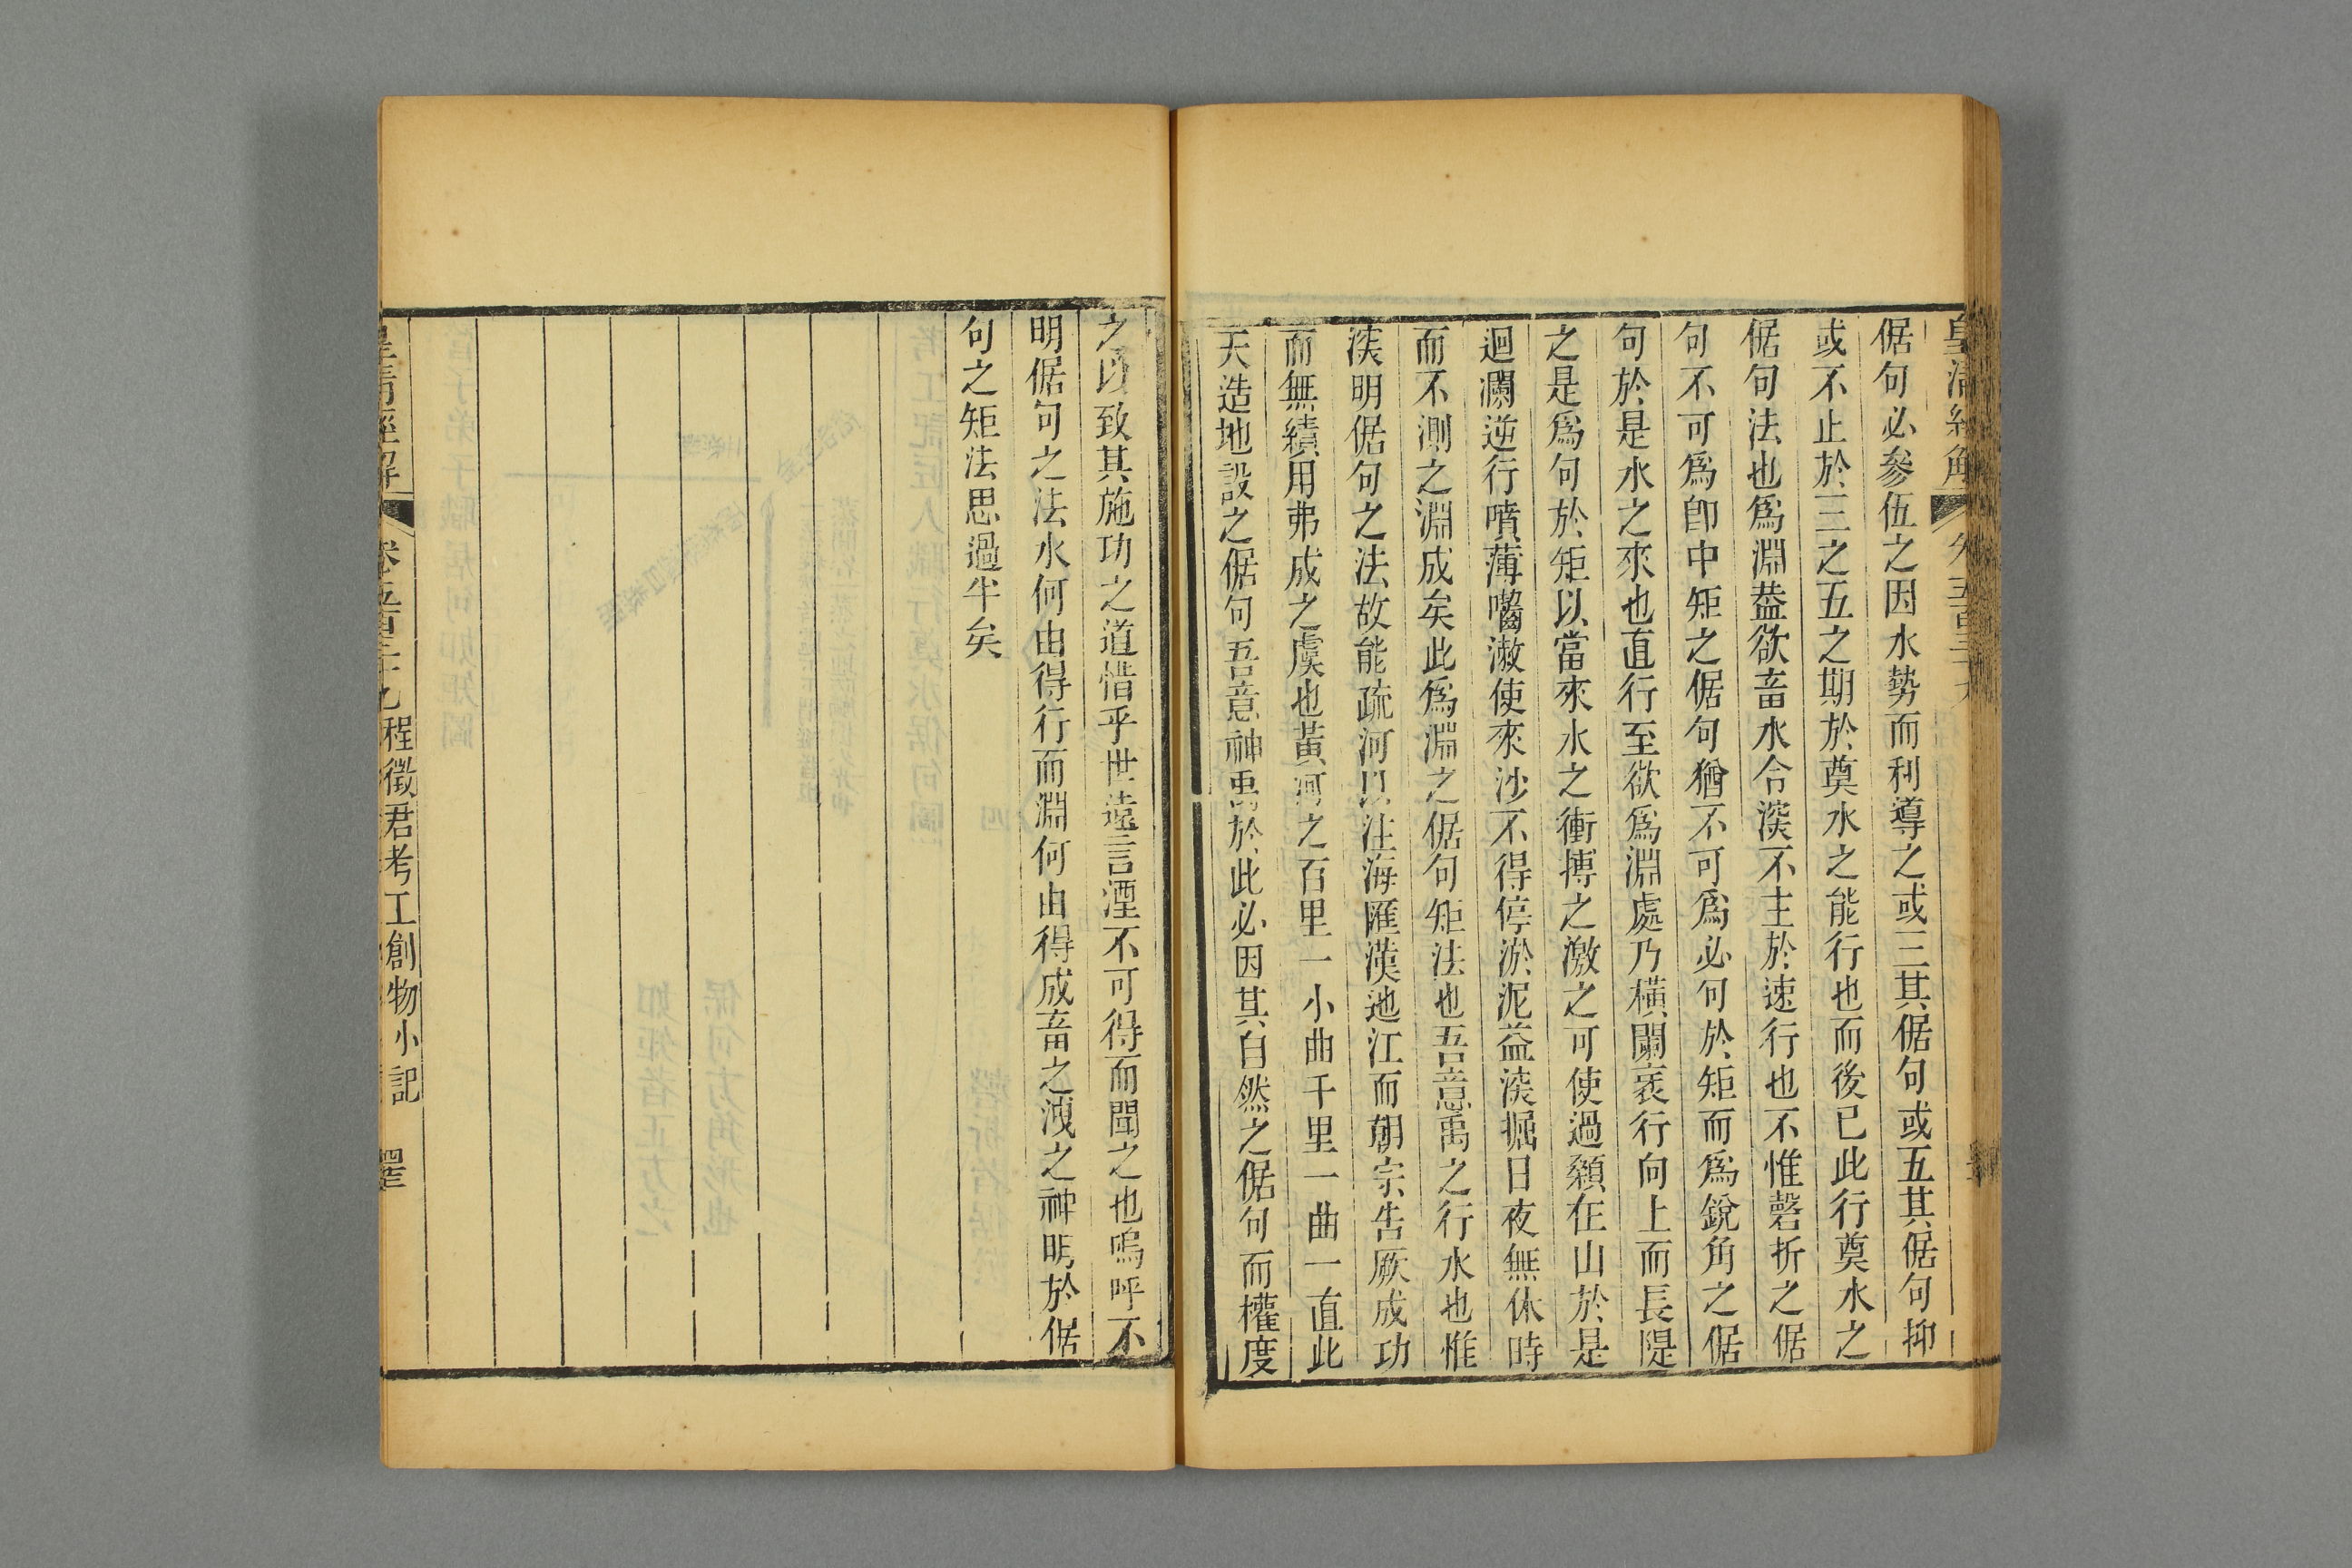 倨句必參伍之因水勢而利導之或三其倨句或五其倨句抑
或不止於三之五之期於奠水之能行也而後已此行奠水之
倨句法也爲淵葢欲畜水令深不主於速行也不惟磬折之倨
句不可爲卽中矩之倨句猶不可爲必句於矩而爲銳角之倨
句於是水之來也直行至欲爲淵處乃橫闌衺行向上而長隄
之是爲句於矩以當來水之衝搏之激之可使過顙在山於是
迴瀾逆行噴薄囓潄使來沙不得停淤泥益淡掘日夜無休時
而不測之淵成矣此爲淵之倨句矩法也吾意禹之行水也惟
淡明倨句之法故能疏河以注海匯漢迆江而朝宗告厥成功
而無績用弗成之虞也黃河之百里一小曲千里一曲一直此
天造地設之倨句吾意神禹於此必因其自然之倨句而權度
之以致其施功之道惜乎世遠言湮不可得而聞之也嗚呼不
明倨句之法水何由得行而淵何由得成畜之洩之神明於倨
句之矩法思過半矣
皇淸經解 卷五百三十九 程徵君考工創物小記